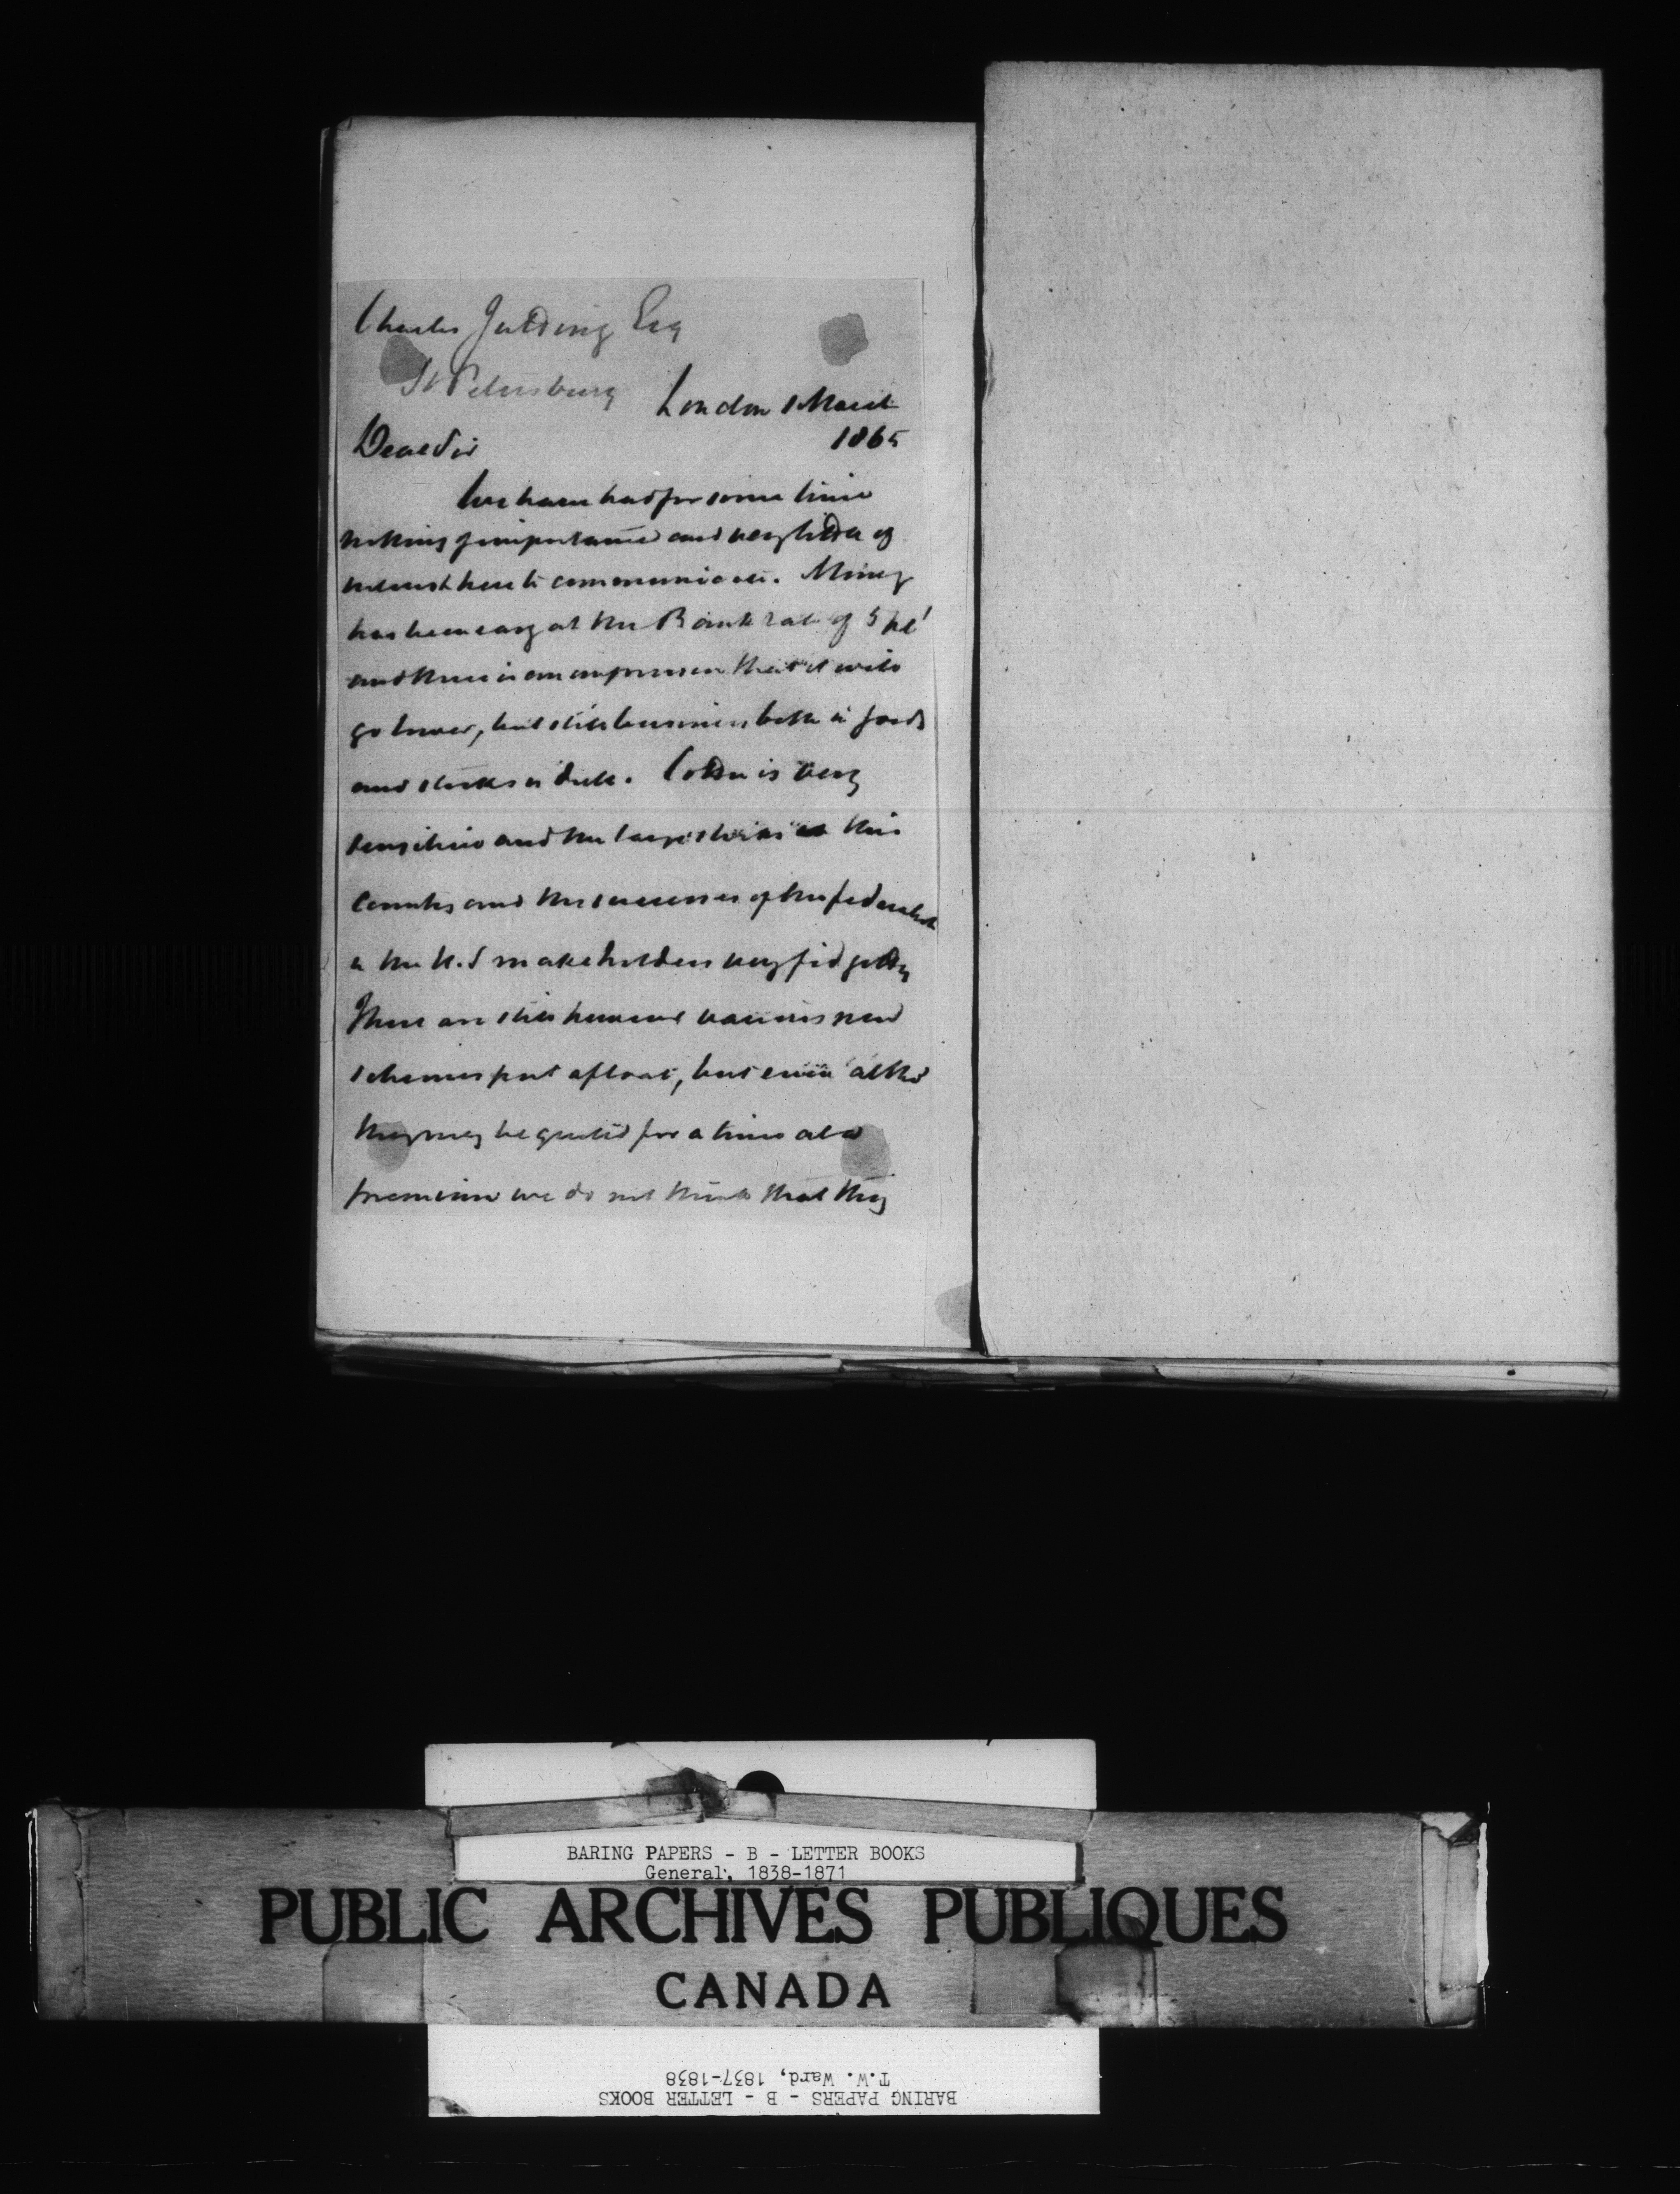 Charles Jutting Esq
St Petersburg
London 1 March
1865
Dear Sir
We have had for some time
nothing of importance and very little of
interest here to communicate. Money
has been easy at the Bank rate of 5 pCt
and there is an impression that it will
go lower, but still business both in goods
and stocks is dull. Cotton is very
sensitive and the large stocks in this
Country and the successes of the federalists
in the U.S make holders very fidgetty
There are still however various new
schemes put afloat, but even altho
they may be quoted for a time at a
premium we do not think that they
BARING PAPERS - B - LETTER BOOKS
General, 1838-1871
PUBLIC ARCHIVES PUBLIQUES
CANADA
BARING PAPERS - B - LETTER BOOKS
T.W. Ward, 1837-1838